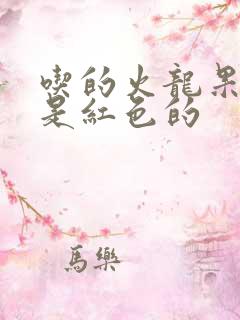 喫的火龍果
是紅色的
馬樂